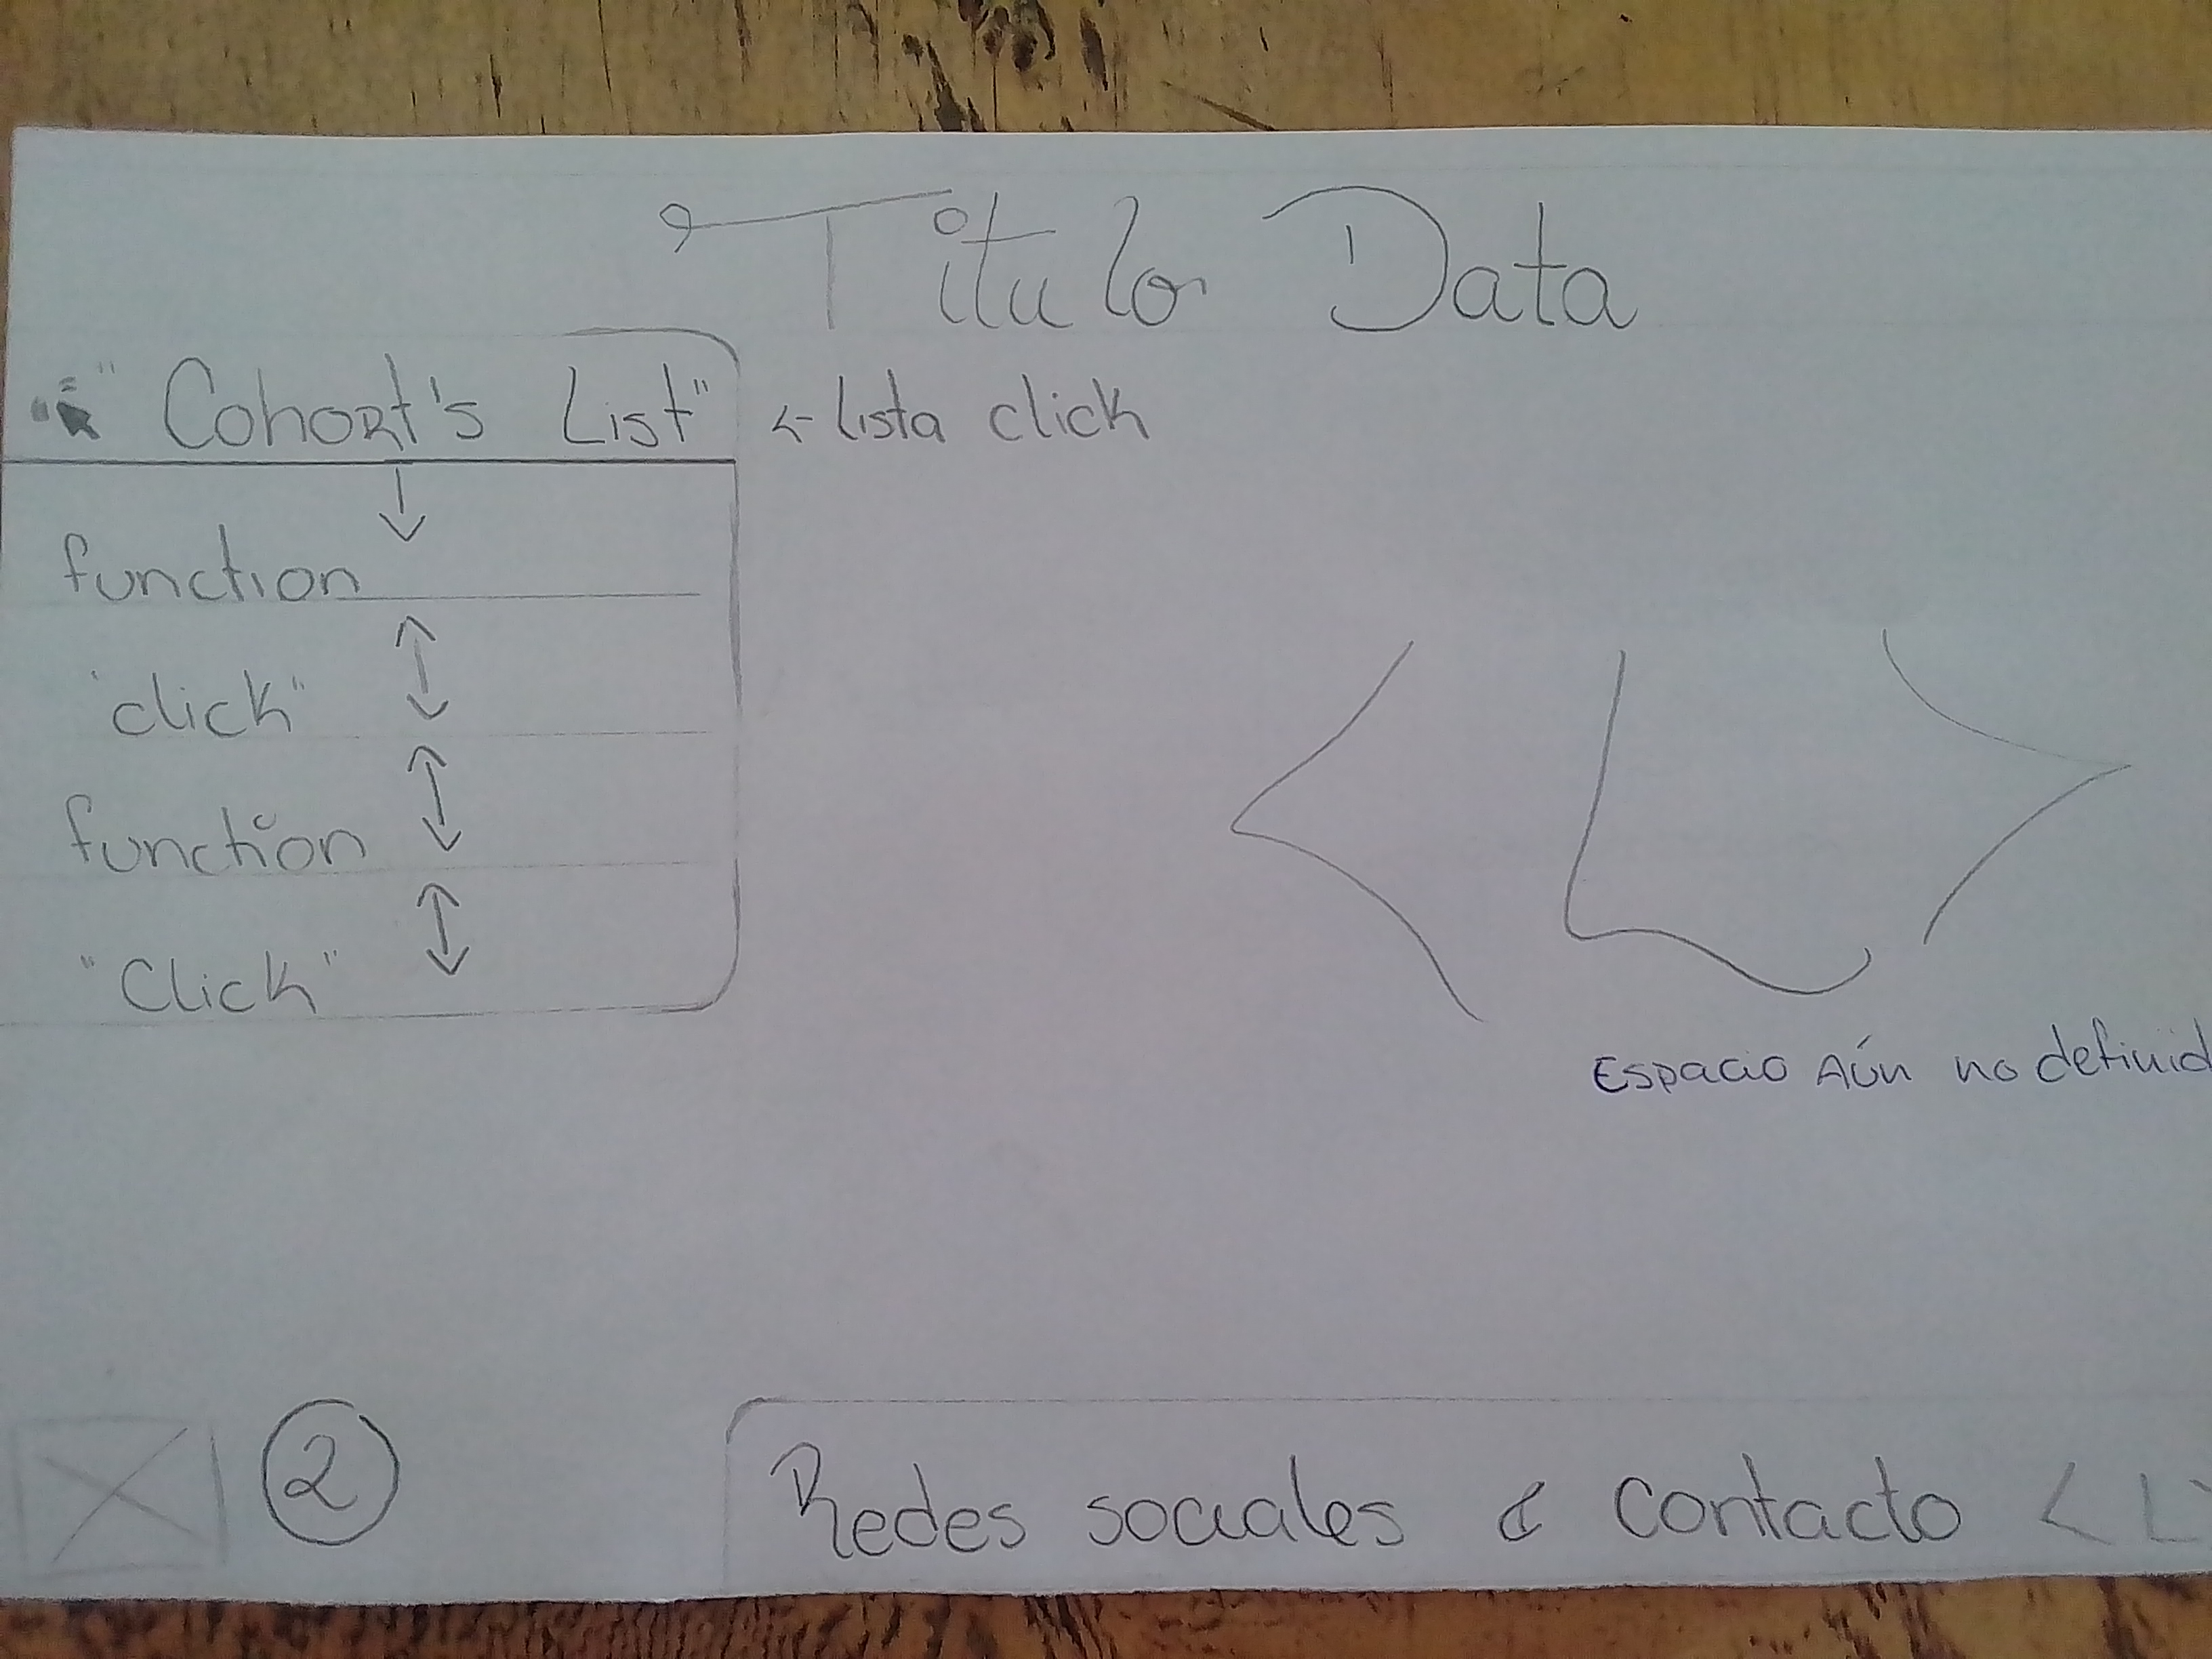 Titulo Data
"Cohort's List" <- lista click
function
"click"
function
"Click"
< L >
Espacio Aún no definid
2
Redes sociales & contacto < L >